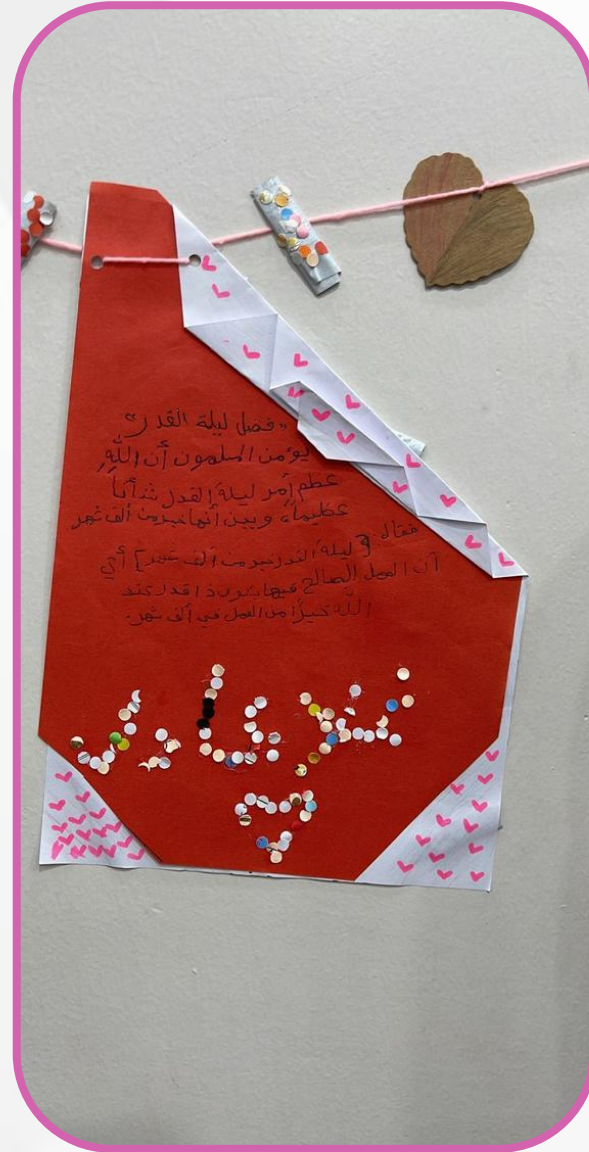 "فضل ليلة القدر"
يؤمن المسلمون أن الله
عظم أمر ليلة القدر شأناً
عظيماً، وبين أنها خير من ألف شهر
فقال: {ليلة القدر خير من ألف شهر} أي
أن العمل الصالح فيها ذا قدر عند
الله خيرًا من العمل في ألف شهر.